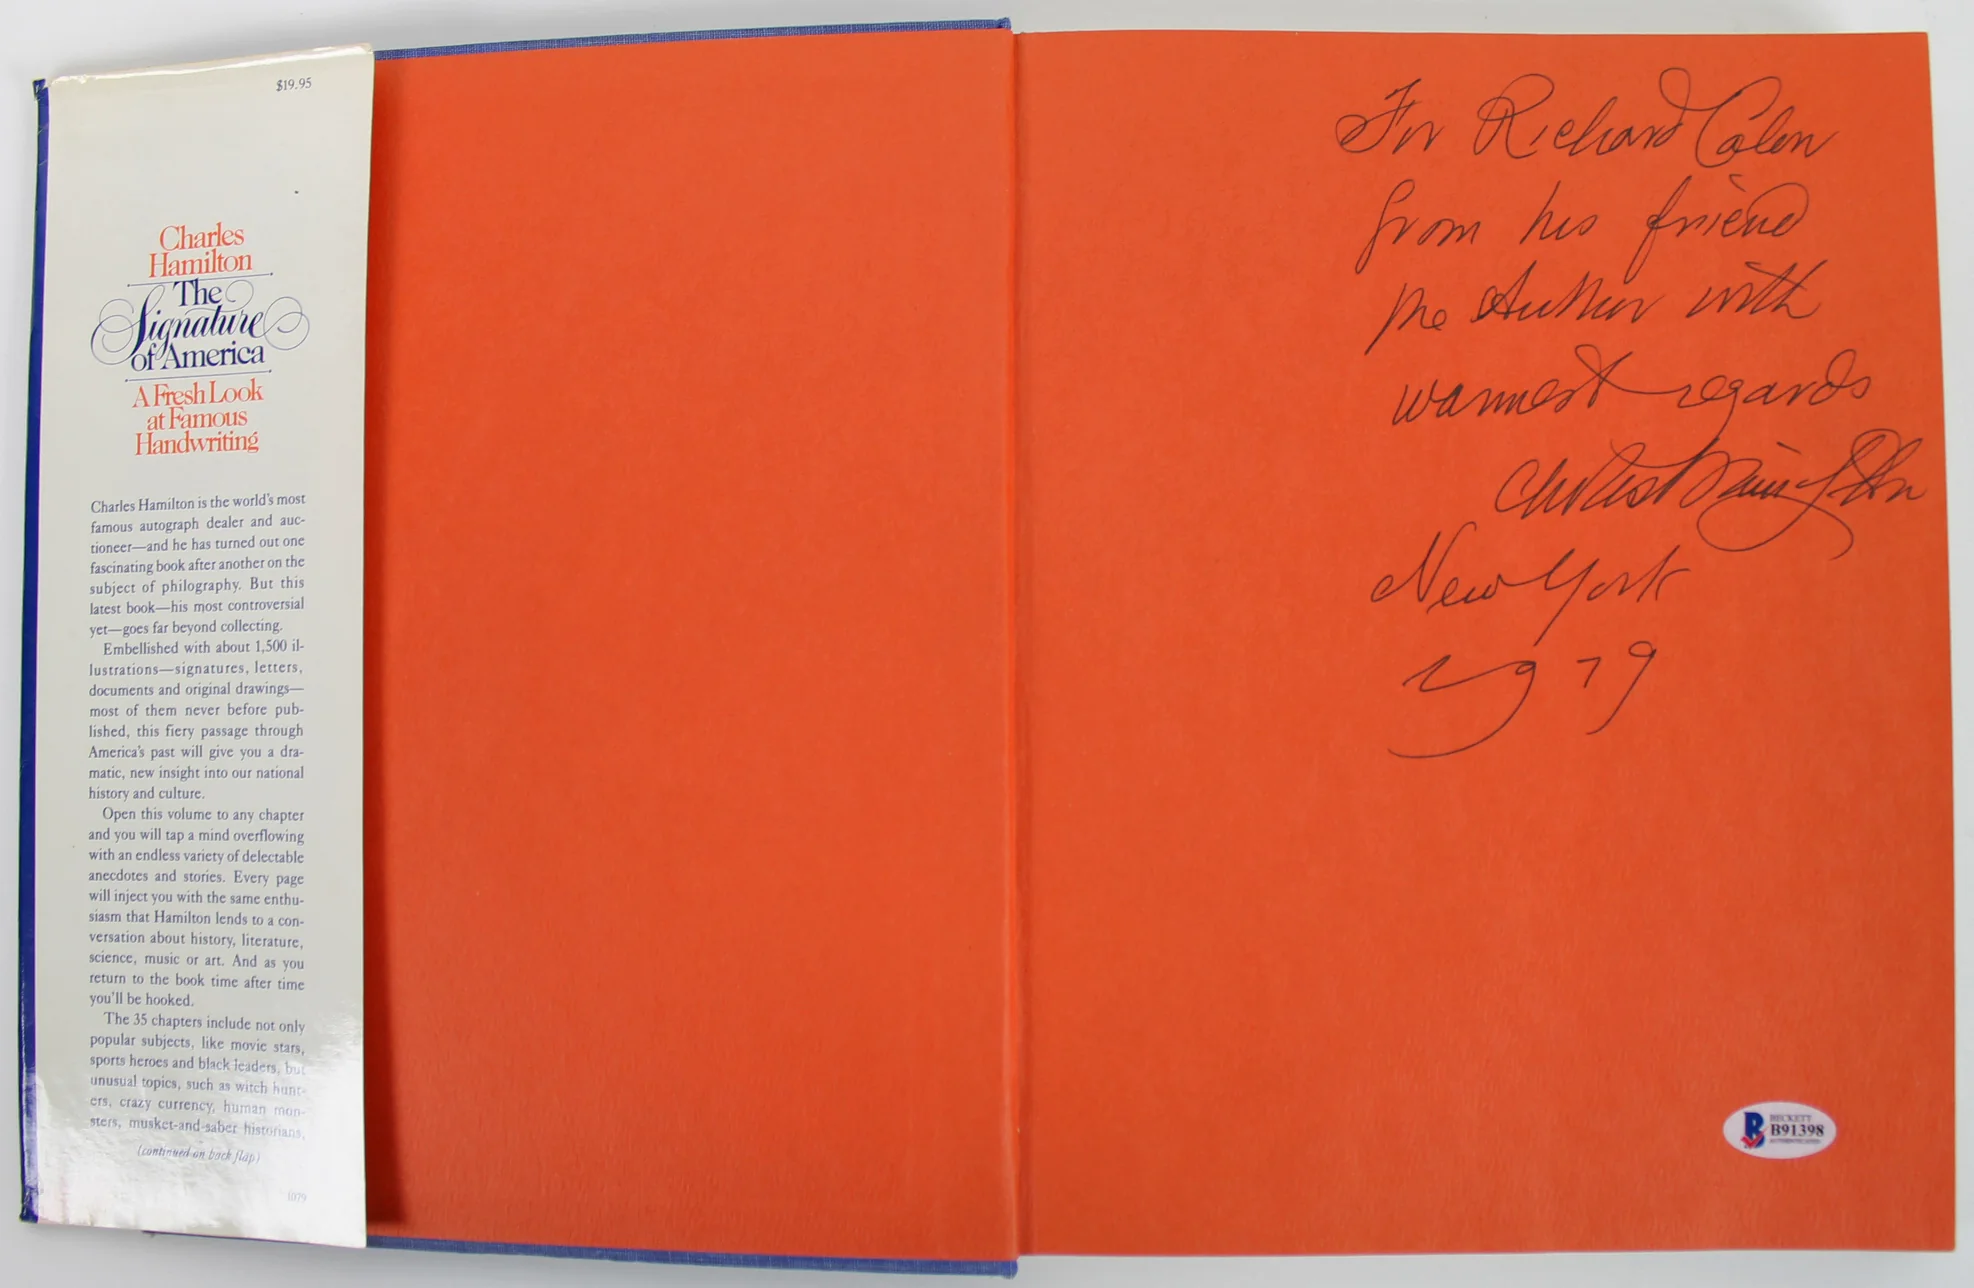 $19.95
Charles
Hamilton
The
Signature
of America
A Fresh Look
at Famous
Handwriting
Charles Hamilton is the world's most
famous autograph dealer and auc-
tioneer—and he has turned out one
fascinating book after another on the
subject of philography. But this
latest book—his most controversial
yet—goes far beyond collecting.
Embellished with about 1,500 il-
lustrations—signatures, letters,
documents and original drawings—
most of them never before pub-
lished, this fiery passage through
America's past will give you a dra-
matic, new insight into our national
history and culture.
Open this volume to any chapter
and you will tap a mind overflowing
with an endless variety of delectable
anecdotes and stories. Every page
will inject you with the same enthu-
siasm that Hamilton lends to a con-
versation about history, literature,
science, music or art. And as you
return to the book time after time
you'll be hooked.
The 35 chapters include not only
popular subjects, like movie stars,
sports heroes and black leaders, but
unusual topics, such as witch hunt-
ers, crazy currency, human mon-
sters, musket-and-saber historians,
(continued on back flap)
1079
For Richard
from his friend
the Author with
warmest regards
New York
1979
BECKETT
B91398
AUTHENTICATED